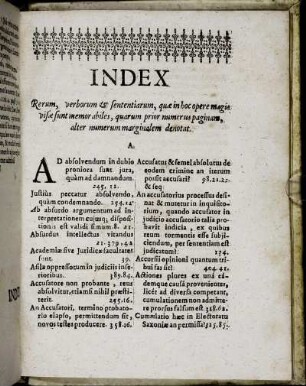 INDEX
Rerum, verborum & sententiarum, quæ in hoc opere magis
visæ sunt memorabiles, quarum prior numerus paginam,
alter numerum marginalem denotat.
A.
AD absolvendum in dubio
proniora sunt jura,
quàm ad damnandum.
245. 12.
Justiùs peccatur absolvendo,
quàm condemnando. 254.
Ab absurdo argumentum ad in-
terpretationem cujusq; disposi-
tionis est validissimum 8. 21.
Absurdus intellectus vitandus
21. 279.
Academiæ sive Juridicæ facultates
sunt. 39.
Asyla oppressorum in judiciis in-
ferioribus. 189. 84.
Accusatore non probante, reus
absolvitur, etiamsi nihil præsti-
terit. 245. 16.
An Accusatori, termino probato-
rio elapso, permittendum sit,
novos testes producere. 358. 16.
Accusatus & semel absolutus de
eodem crimine an iterum
possit accusari? 98. 21. 22.
& seq.
An accusatorius processus desi-
nat & mutetur in inquisito-
rium, quando accusator in
judicio accusatorio talia pro-
bavit indicia, ex quibus
reum tormentis esse subji-
ciendum, per sententiam est
pronunciatum? 254.
Accursii opinioni quantum tri-
buat fas sit? 404. 41.
Actiones plures ex una ea-
demque causa provenientes,
licèt ad diversa competant,
cumulationem non admitte-
re prorsus falsum est 318. 61.
Cumulatio hæc in Electoratu
Saxoniæ an permissa? 323. 85.